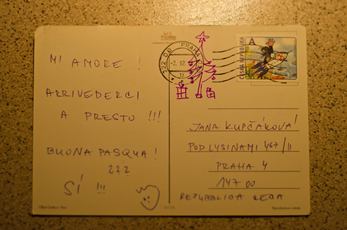 MI AMORE !
ARRIVEDERCI
A PRESTO !!!
BUONA PASQUA !
222
SÍ !!!
PRAHA
A
JANA KUPČÁKOVÁ !
POD LYSINAMI 467/11
PRAHA 4
147 00
REPUBBLICA CECA